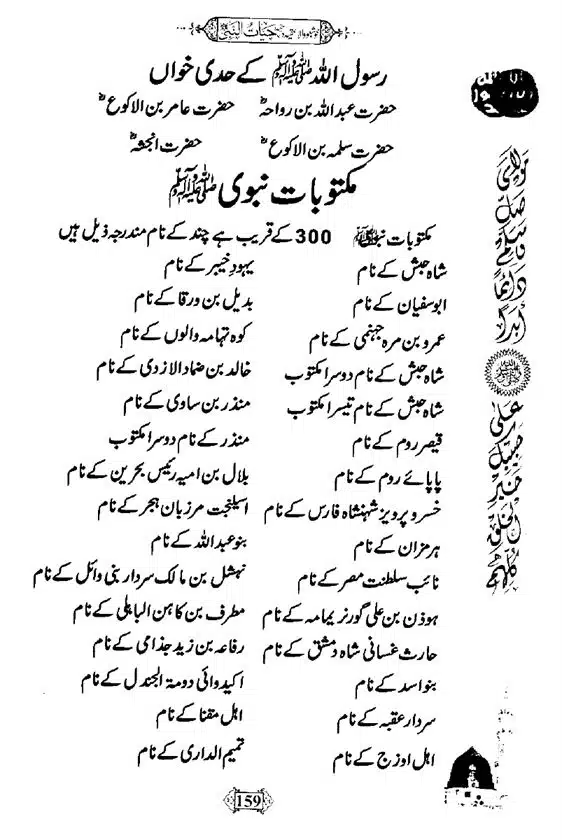 حیات النبیؐ
رسول اللہ ﷺ کے حدی خواں
حضرت عبداللہ بن رواحہؓ حضرت عامر بن الاکوعؓ
حضرت سلمہ بن الاکوعؓ حضرت انجشہؓ
مکتوبات نبوی ﷺ
مکتوبات نبویﷺ 300 کے قریب ہے چند کے نام مندرجہ ذیل ہیں
شاہ حبش کے نام یہود خیبر کے نام
ابوسفیان کے نام بدیل بن ورقا کے نام
عمرو بن مرہ جہنمی کے نام کوہ تہامہ والوں کے نام
شاہ حبش کے نام دوسرا مکتوب خالد بن ضماد الازدی کے نام
شاہ حبش کے نام تیسرا مکتوب منذر بن ساوی کے نام
قیصر روم کے نام منذر کے نام دوسرا مکتوب
پاپائے روم کے نام بلال بن امیہ رئیس بحرین کے نام
خسرو پرویز شہنشاہ فارس کے نام اسیلخجت مرزبان ہجر کے نام
ہرمزان کے نام بنو عبداللہ کے نام
نائب سلطنت مصر کے نام نہشل بن مالک سردار بنی وائل کے نام
ہوذن بن علی گورنر یمامہ کے نام مطرف بن کاہن الباہلی کے نام
حارث غسانی شاہ دمشق کے نام رفاعہ بن زید جذامی کے نام
بنو اسد کے نام اکیدوائی دومۃ الجندل کے نام
سردار عقبہ کے نام اہل مقنا کے نام
اہل اوزج کے نام تمیم الداری کے نام
مولای صل وسلم دائما ابدا
ﷺ
علی حبیبک خیر الخلق کلهم
159